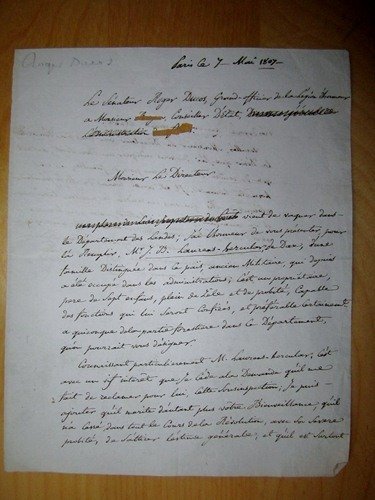 Roger Ducos
Paris Le 7 Mai 1807.
Le Senateur Roger Ducos, Grand officier de la Légion d'honneur
a Monsieur Conseiller D'Etat,
Monsieur Le Directeur
vient de vaquer dans
le Département des Landes, j'ai l'honneur de vous présenter pour
la Remplir, Mr J. B. Laurans-hercular de Dax, d'une
famille Distinguée dans le païs, ancien Militaire, qui depuis
a été occupé dans les administrations; c'est un propriétaire,
pere de Sept enfans, plein de Zele et de probité, Capable
des fonctions qui lui Seront Confiées, et préférable certainement
a quiconque de la partie forestiere dans le Département,
qu'on pourrait vous désigner.
Connaissant particulierement M. Laurans-hercular, c'est
avec un vif interet que je Cede a la Demande qu'il me
fait de reclamer pour lui, cette je puis
ajouter qu'il merite d'autant plus votre Bienveillance, qu'il
n'a cessé dans tout le Cours de la Révolution, avec Sa Severe
probité, de l'estime générale, et qu'il est Surtout